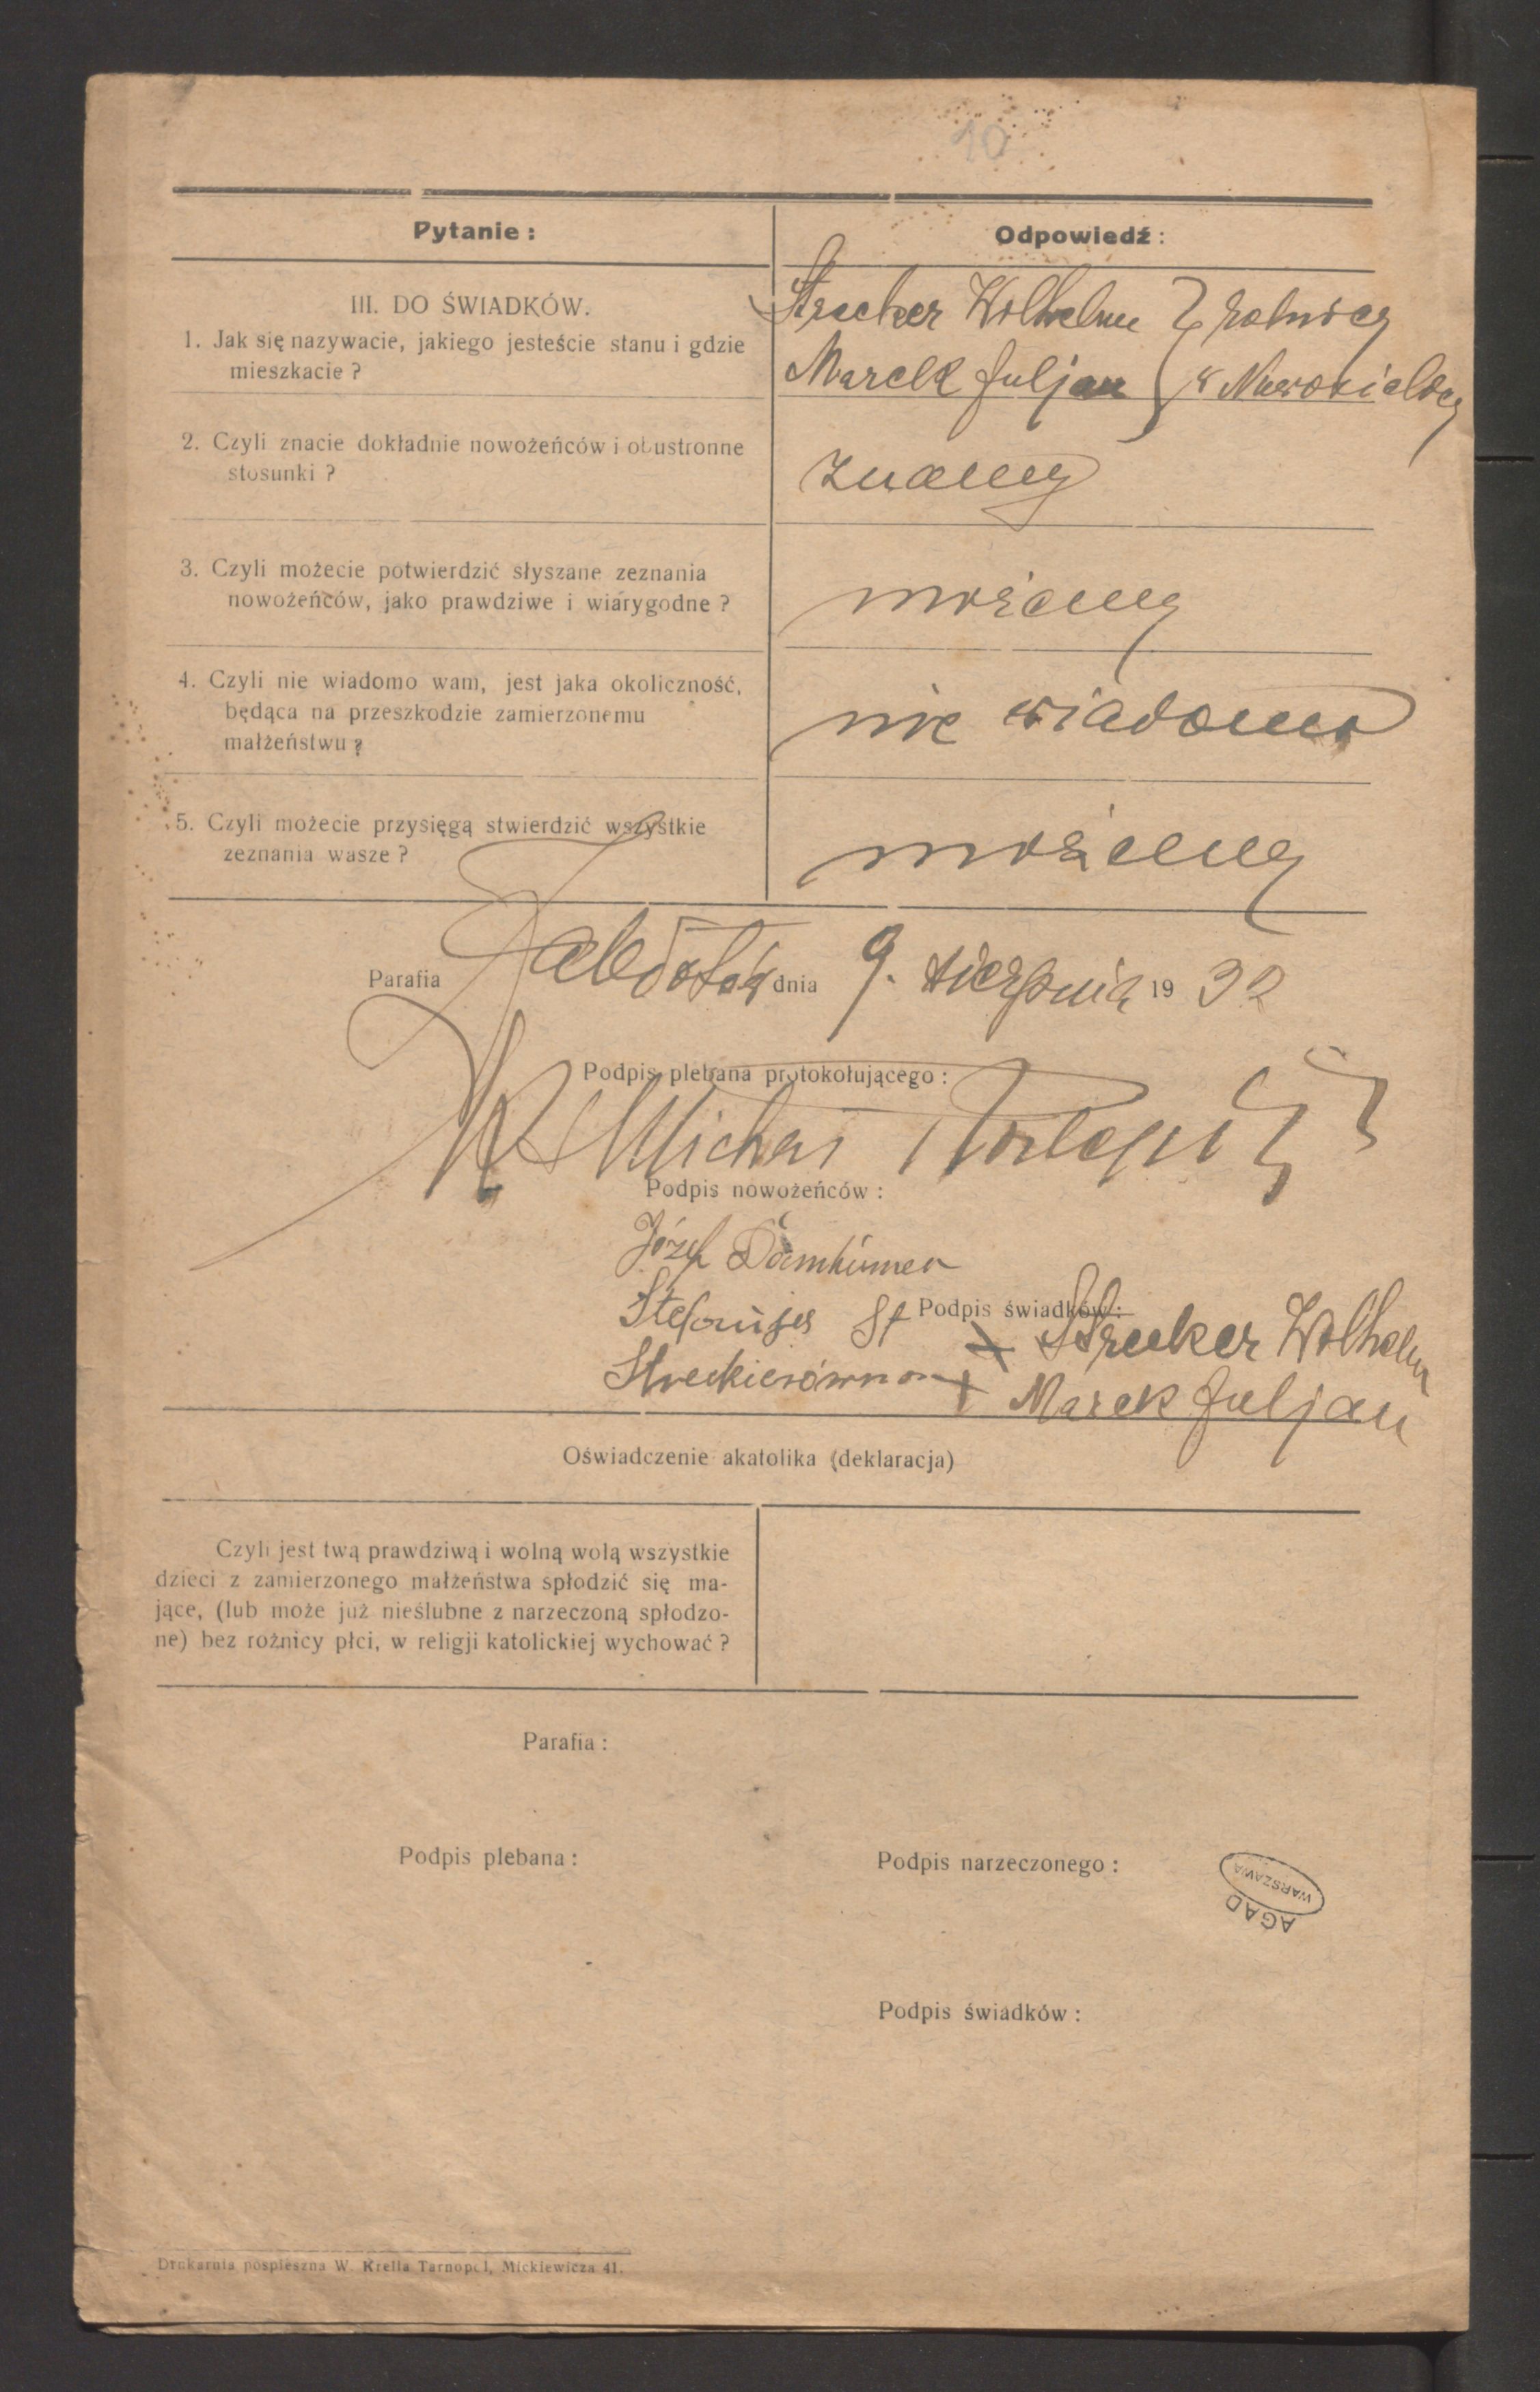 10
Pytanie :
Odpowiedź :
III. DO ŚWIADKÓW.
1. Jak się nazywacie, jakiego jesteście stanu i gdzie
mieszkacie ?
Strecker Wilhelm } rolnicy
Marek Juljan } w Nowosielicy
2. Czyli znacie dokładnie nowożeńców i obustronne
stosunki ?
znamy
3. Czyli możecie potwierdzić słyszane zeznania
nowożeńców, jako prawdziwe i wiarygodne ?
możemy
4. Czyli nie wiadomo wam, jest jaka okoliczność,
będąca na przeszkodzie zamierzonemu
małżeństwu ?
nie wiadomo
5. Czyli możecie przysięgą stwierdzić wszystkie
zeznania wasze ?
możemy
Parafia Zabłotów dnia 9. sierpnia 19 32
Podpis plebana protokołującego :
X Michał
Podpis nowożeńców :
Józef
Stefanija St
Streckierówna
Podpis świadków :
+ Strecker Wilhelm
+ Marek Juljan
Oświadczenie akatolika (deklaracja)
Czyli jest twą prawdziwą i wolną wolą wszystkie
dzieci z zamierzonego małżeństwa spłodzić się ma-
jące, (lub może już nieślubne z narzeczoną spłodzo-
ne) bez rożnicy płci, w religji katolickiej wychować ?
Parafia :
Podpis plebana :
Podpis narzeczonego :
AGAD
WARSZAWA
Podpis świadków :
Drukarnia pospieszna W. Krella Tarnopol, Mickiewicza 41.